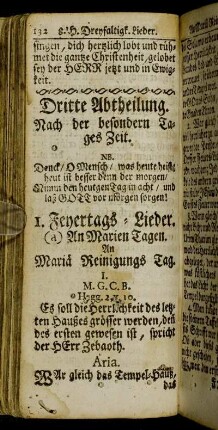 132 8. H. Dreyfaltigk. Lieder.
singen, dich hertzlich lobt und rüh-
met die gantze Christenheit, gelobet
sey der HERR jetzt und in Ewig-
keit.
Dritte Abtheilung.
Nach der besondern Ta-
ges Zeit.
NB.
Denck / O Mensch / was heute heist;
heut ist besser denn der morgen /
Nimm den heutgen Tag in acht / und
laß GOTT vor morgen sorgen!
1. Feyertags = Lieder.
(a) An Marien Tagen.
An
Mariä Reinigungs Tag.
I.
M. G. C. B.
Hagg. 2. v. 10.
Es soll die Herrlichkeit des letz-
ten Haußes grösser werden, deñ
des ersten gewesen ist, spricht
der HErr Zebaoth.
Aria.
WAr gleich das Tempel-Hauß,
das